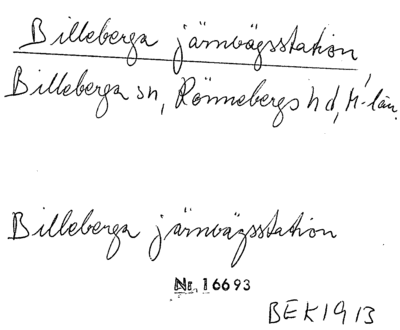 Billeberga järnvägsstation,
Billeberga sn, Rönnebergs hd, M-län.
Billeberga järnvägsstation
Nr. 16693
BEK1913